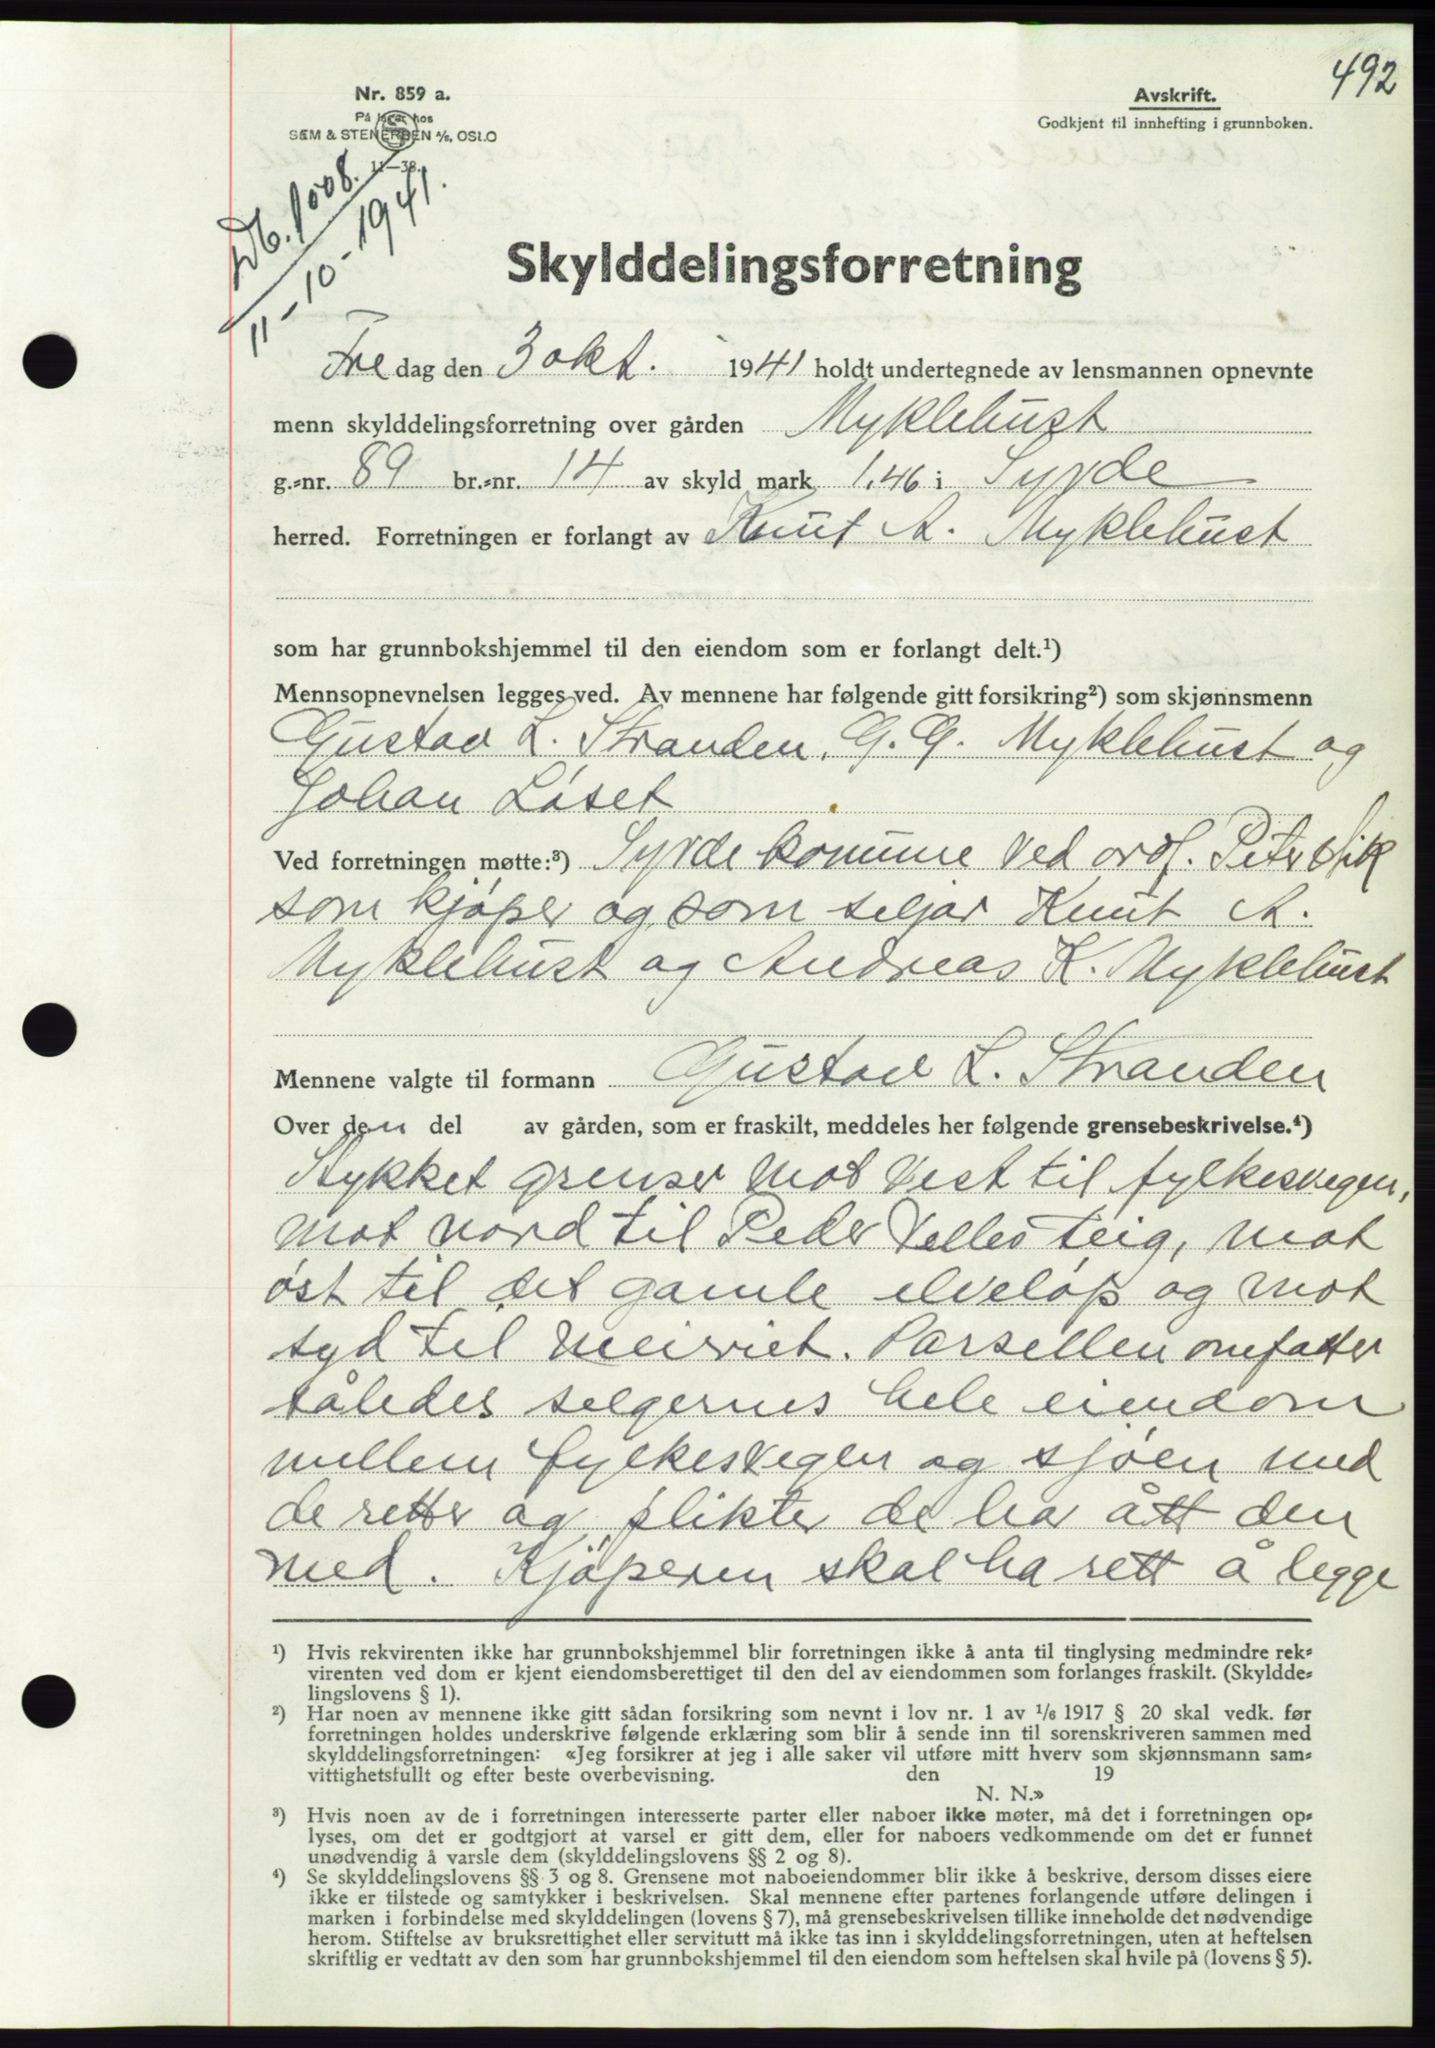 492
Nr. 859 a.
På lager hos
SÆM & STENERSEN A/S, OSLO
11—38.
Avskrift.
Godkjent til innhefting i grunnboken.
Db. 1008.
11-10-1941.
Skylddelingsforretning
Fredag den 3 okt. 1941 holdt undertegnede av lensmannen opnevnte
menn skylddelingsforretning over gården Myklebust
g.=nr. 89 br.=nr. 14 av skyld mark 1.46 i Syvde
herred. Forretningen er forlangt av Knut A. Myklebust
som har grunnbokshjemmel til den eiendom som er forlangt delt.¹)
Mennsopnevnelsen legges ved. Av mennene har følgende gitt forsikring²) som skjønnsmenn
Gustav L. Stranden, G. G. Myklebust og
Johan Løset
Ved forretningen møtte:³) Syvde komune ved ordf. Peter
som kjøper og som seljar Knut A.
Myklebust og Andreas K. Myklebust
Mennene valgte til formann Gustav L. Stranden
Over den del av gården, som er fraskilt, meddeles her følgende grensebeskrivelse.⁴)
Stykket grenser mot vest til fylkesvegen,
mot nord til Peder Velles teig, mot
øst til det gamle elveløp og mot
syd til Meieriet. Parsellen omfatter
således selgernes hele eiendom
mellem fylkesvegen og sjøen med
de retter og plikter de har ått den
med. Kjøperen skal ha rett å legge
¹) Hvis rekvirenten ikke har grunnbokshjemmel blir forretningen ikke å anta til tinglysing medmindre rek=
virenten ved dom er kjent eiendomsberettiget til den del av eiendommen som forlanges fraskilt. (Skyldde=
lingslovens § 1).
²) Har noen av mennene ikke gitt sådan forsikring som nevnt i lov nr. 1 av ¹/₈ 1917 § 20 skal vedk. før
forretningen holdes underskrive følgende erklæring som blir å sende inn til sorenskriveren sammen med
skylddelingsforretningen: «Jeg forsikrer at jeg i alle saker vil utføre mitt hverv som skjønnsmann sam=
vittighetsfullt og efter beste overbevisning. den 19
N. N.»
³) Hvis noen av de i forretningen interesserte parter eller naboer ikke møter, må det i forretningen op=
lyses, om det er godtgjort at varsel er gitt dem, eller for naboers vedkommende om det er funnet
unødvendig å varsle dem (skylddelingslovens §§ 2 og 8).
⁴) Se skylddelingslovens §§ 3 og 8. Grensene mot naboeiendommer blir ikke å beskrive, dersom disses eiere
ikke er tilstede og samtykker i beskrivelsen. Skal mennene efter partenes forlangende utføre delingen i
marken i forbindelse med skylddelingen (lovens § 7), må grensebeskrivelsen tillike inneholde det nødvendige
herom. Stiftelse av bruksrettighet eller servitutt må ikke tas inn i skylddelingsforretningen, uten at heftelsen
skriftlig er vedtatt av den som har grunnbokshjemmel til den eiendom som heftelsen skal hvile på (lovens § 5).